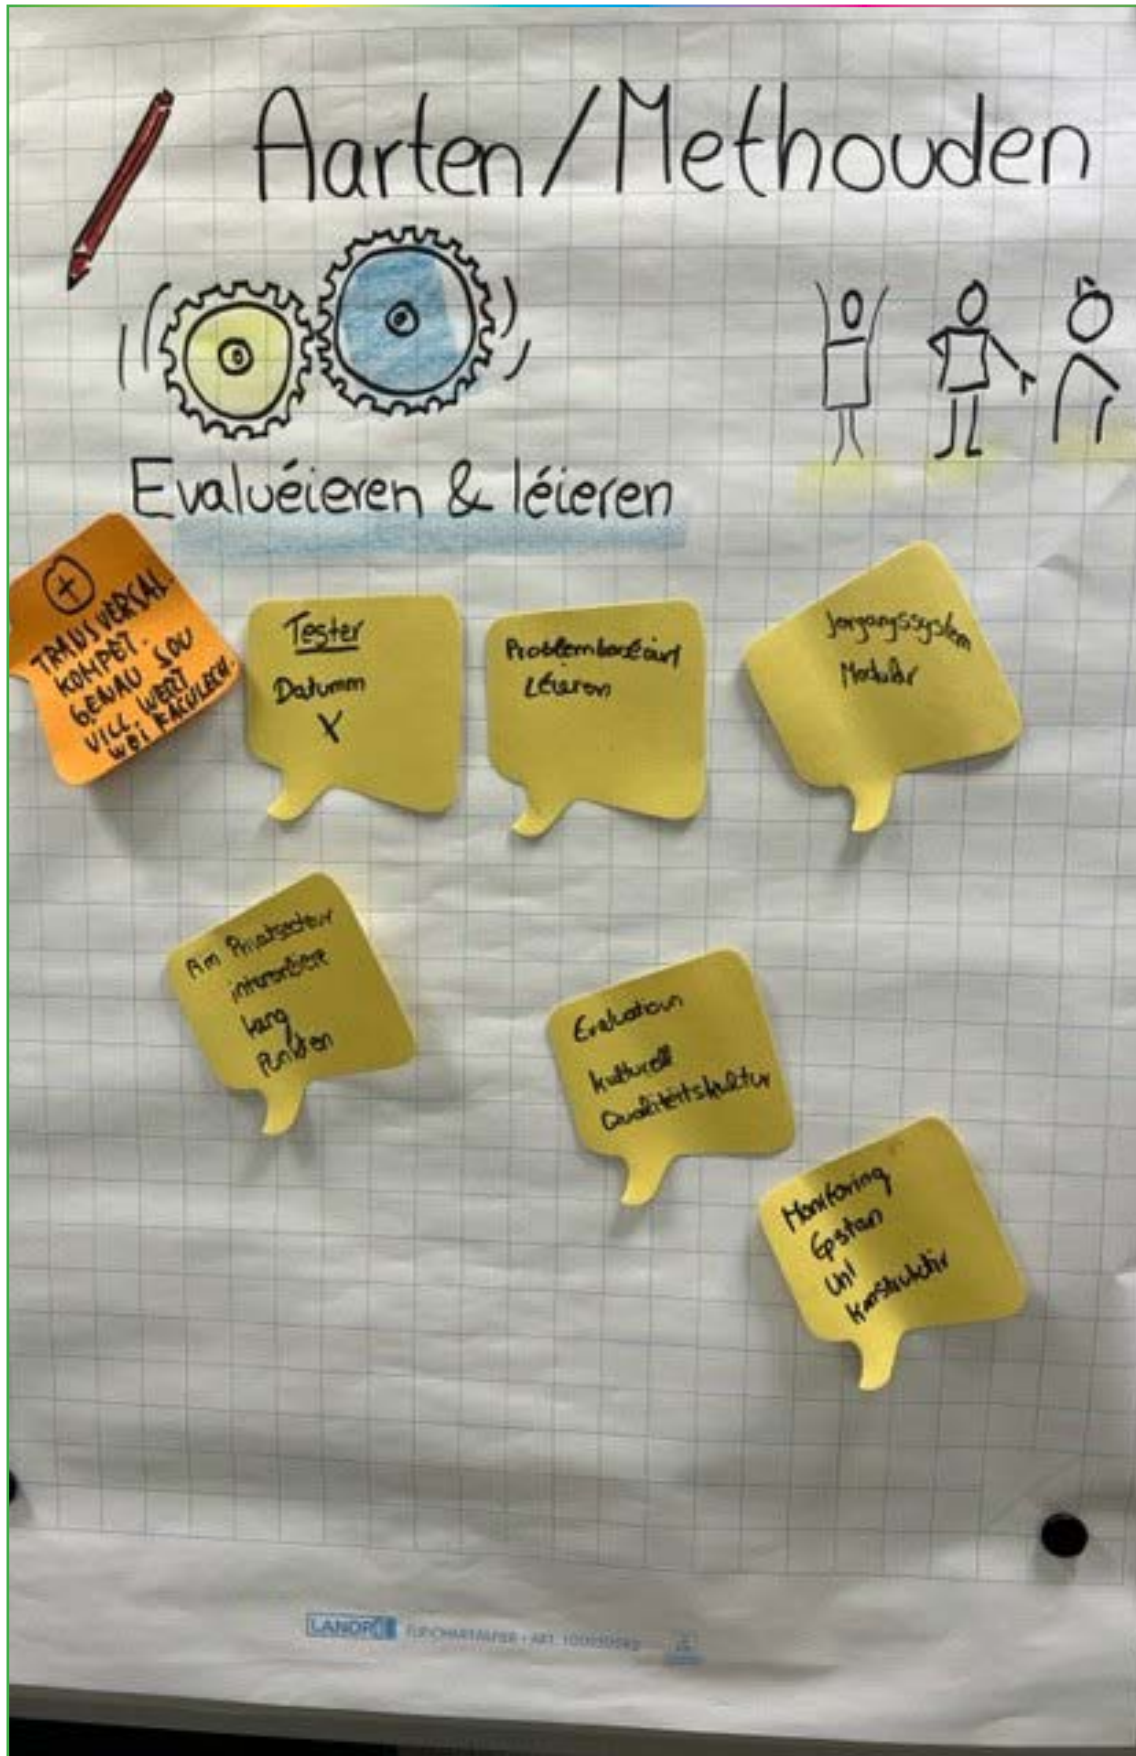 Aarten/Methouden
Evaluéieren & léieren
+
TRANSVERSAL.
KOMPET.
GENAU SOU
VILL WERT
WEI FACHLECH
Tester
Datumm
X
Problembaséiert
Léieren
Jorgangssystem
Modulär
Am Privatsecteur
Kang
Punkten
Evaluatioun
kulturell
Qualitéitskultur
Monitoring
Epstan
Uni
Konstruktiv
LANDRÉ
FLIPCHARTPAPIER • ART.